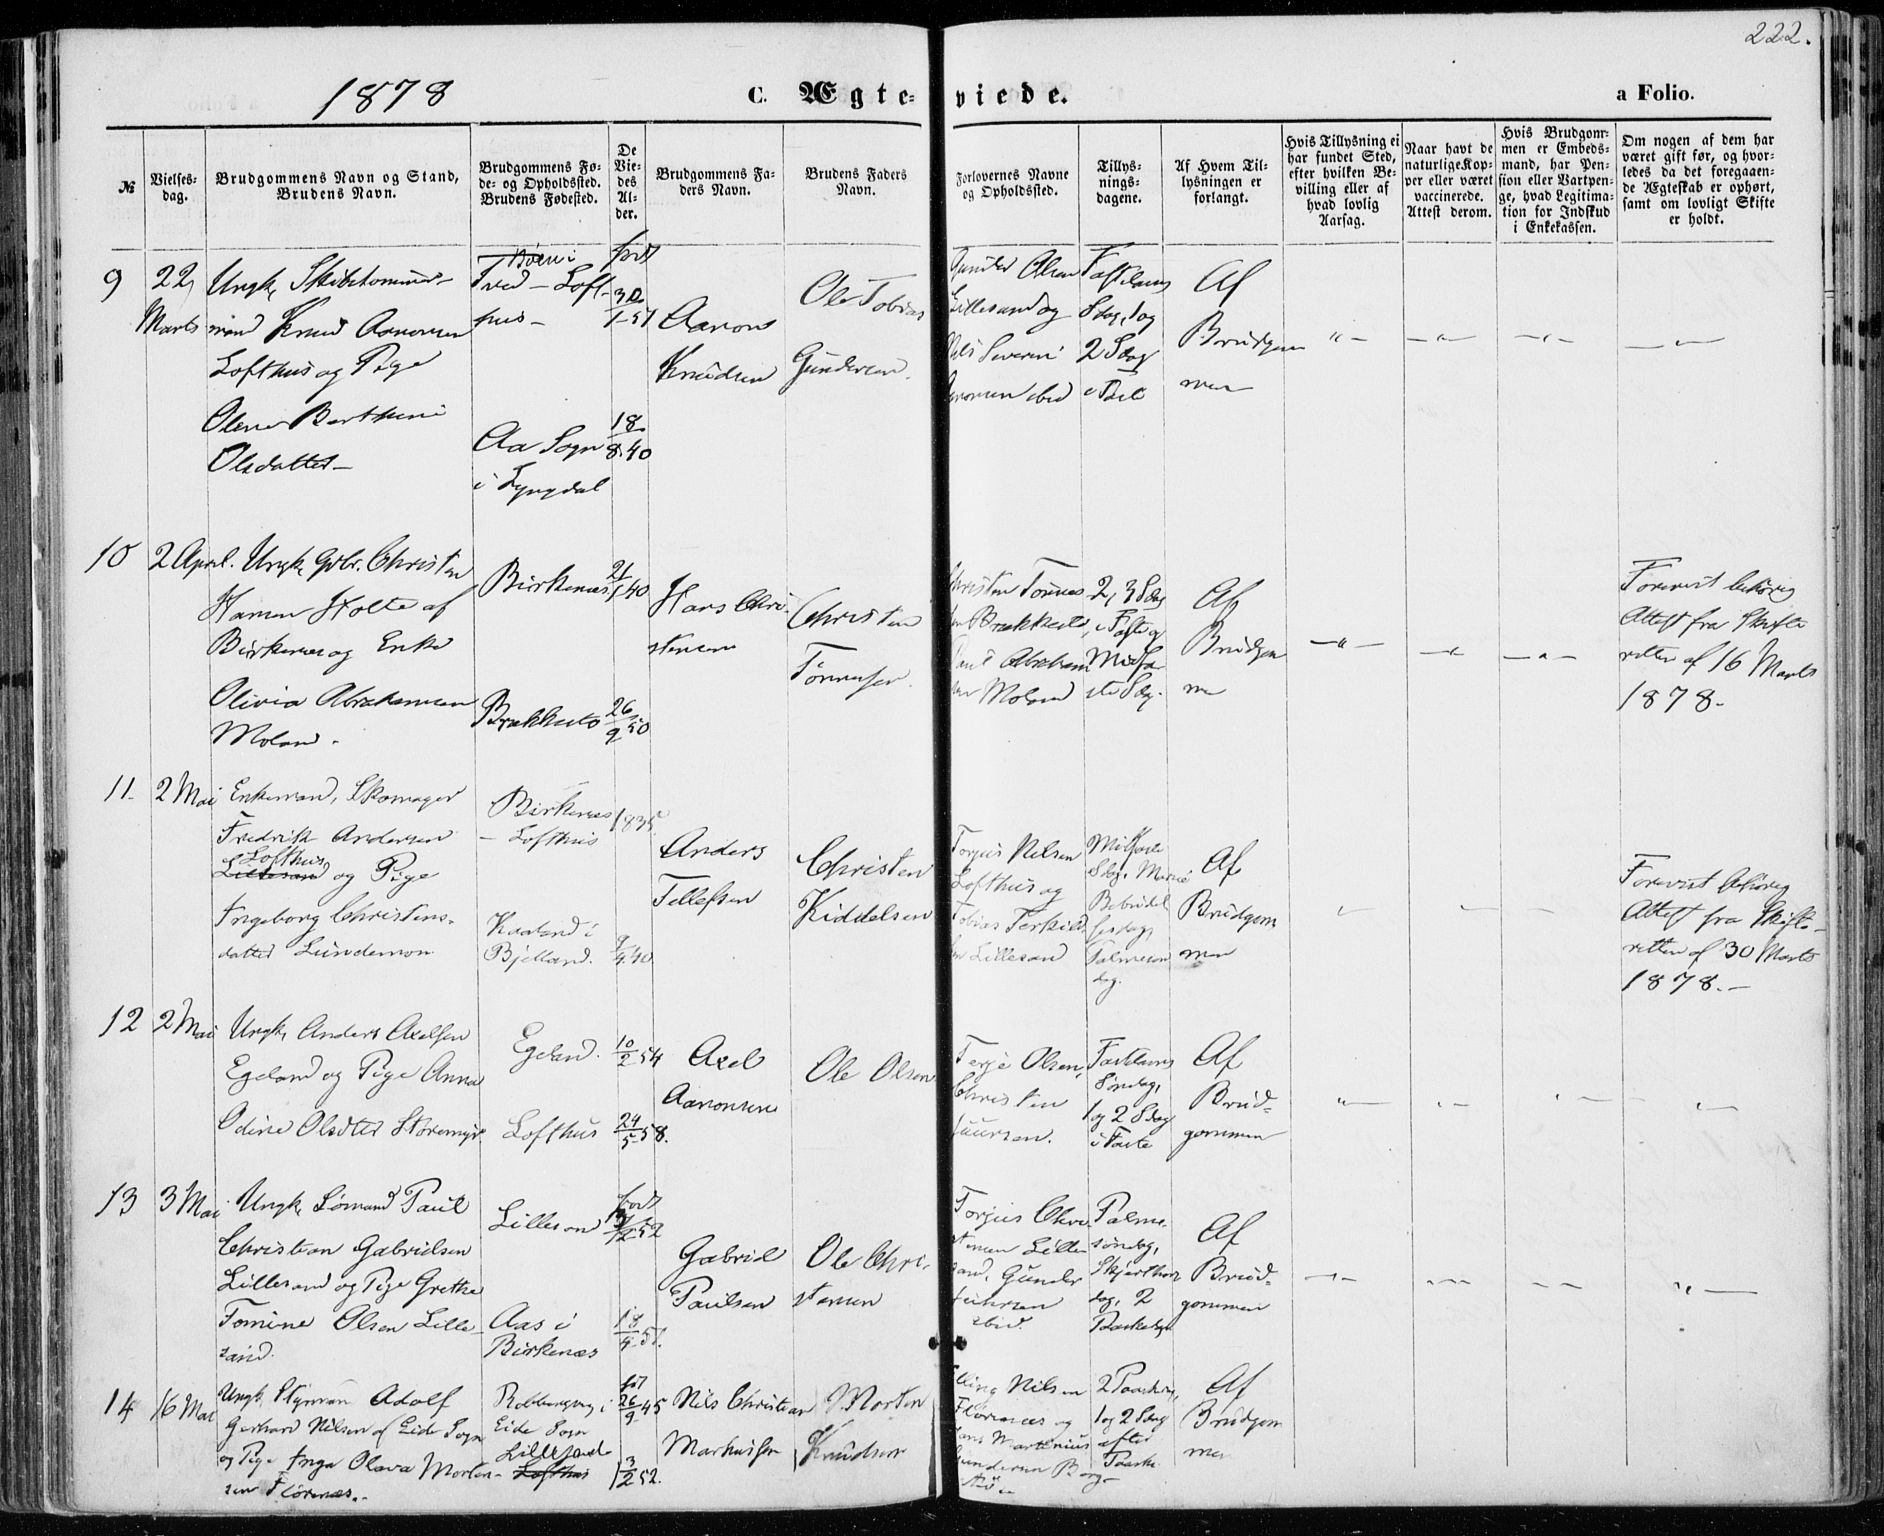 222.
1878
C. Ægte-
viede.
a Folio.
№
Vielses-
dag.
Brudgommens Navn og Stand,
Brudens Navn.
Brudgommens Fø-
de- og Opholdssted.
Brudens Fødested.
De
Vie-
des
Al-
der.
Brudgommens Fa-
ders Navn.
Brudens Faders
Navn.
Forlovernes Navne
og Opholdssted.
Tillys-
nings-
dagene.
Af Hvem Til-
lysningen er
forlangt.
Hvis Tillysning ei
har fundet Sted,
efter hvilken Be-
villing eller af
hvad lovlig
Aarsag.
Naar havt de
naturlige Kop-
per eller været
vaccinerede.
Attest derom.
Hvis Brudgom-
men er Embeds-
mand, har Pen-
sion eller Vartpen-
ge, hvad Legitima-
tion for Indskud
i Enkekassen.
Om nogen af dem har
været gift før, og hvor-
ledes da det foregaaen-
de Ægteskab er ophørt,
samt om lovligt Skifte
er holdt.
9
22
Marts
Ungk. Skibstømmer-
mand Knud Aanonsen
Lofthus og Pige
Olene Barthine
Olsdatter
Tved - Loft-
hus -
Aa Sogn
i Lyngdal
født
30/1 51
18/8 40
Aanons
Knudsen
Ole Tobias
Gundersen.
Gunder Olsen
Lillesand og
Nils Severin
Aanonsen ibid
Fastelavns
Sdag, 1 og
2 Sdag
i Faste
Af
Brudgom
men
10
2 April.
Ungk. Gbr. Christen
Hansen Holte af
Birkenæs og Enke
Olivia Abrahamsen
Moland.
Birkenæs
Brækkestø
21/1 40
26/9 50
Hans Chri-
stensen
Christen
Tønnesen.
Christen Tønnes
sen Brækkestø,
Paul Abraham
sen Moland
2, 3 Sdag
i Faste og
Midfa-
ste Sdag.
Af
Brudgom
me
Forevist behørig
Attest fra Skifte
retten af 16 Marts
1878.
11
2 Mai
Enkemand, Skomager
Fredrik Andersen
Lofthus
Lillesand og Pige
Ingeborg Christens-
datter Lundemon
Birkenæs
- Lofthus
Kaaland i
Bjelland.
1835.
9/4 40
Anders
Tellefsen
Christen
Kiddelsen
Torjus Nilsen
Lofthus og
Tobias Terkild
sen Lillesand
Midfaste
Sdag, Mariæ
Bebudel
sesdag,
Palmesøn
dag.
Af
Brudgom
men
Forevist behørig
Attest fra Skifte-
retten af 30 Marts
1878. -
12
2 Mai
Ungk. Anders Axelsen
Egeland og Pige Anna
Odine Olsdtter Storemyr.
Egeland.
Lofthus
10/2 54
24/5 58.
Axel
Aanonsen
Ole Olsen
Terje Olsen,
Christen
Fastelavns
Søndag,
1 og 2 Sdag
i Faste
Af
Brud-
gommen
13
3 Mai
Ungk. Sømand Paul
Christian Gabrielsen
Lillesand og Pige Grethe
Tomine Olsen Lille-
sand.
Lillesand
Aas i
Birkenæs
født
52
18/4 51.
Gabriel
Paulsen
Ole Chri-
stensen
Torjus Chri-
stensen Lille
sand, Gunder
ibid.
Palme-
søndag,
Skjærthors
dag, 2
Paaskedag
Af
Brud-
gommen
14
16 Mai
Ungk. Styrman Adolf
Gerhard Nilsen af Eide Sogn
og Pige Inga Olava Morten-
sen Florenæs.
i
Eide Sogn
Lillesand
Lofthus
født
26/9 45
3/2 52.
Nils Christian
Markussen
Morten
Knudsen
Elling Nilsen
Florenæs og
Hans Martinius
Gundersen Borg-
2 Paaskedag,
1 og 2 Sdag
efter
Paaske
Af
Brudgom
men